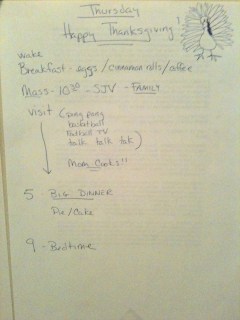 Thursday
Happy Thanksgiving!
wake
Breakfast - eggs/cinnamon rolls/coffee
Mass - 10:30 - SJV - FAMILY
visit (ping pong
basketball
football TV
talk talk talk)
Mom Cooks!!
5 BIG DINNER
Pie/Cake
9 - Bedtime